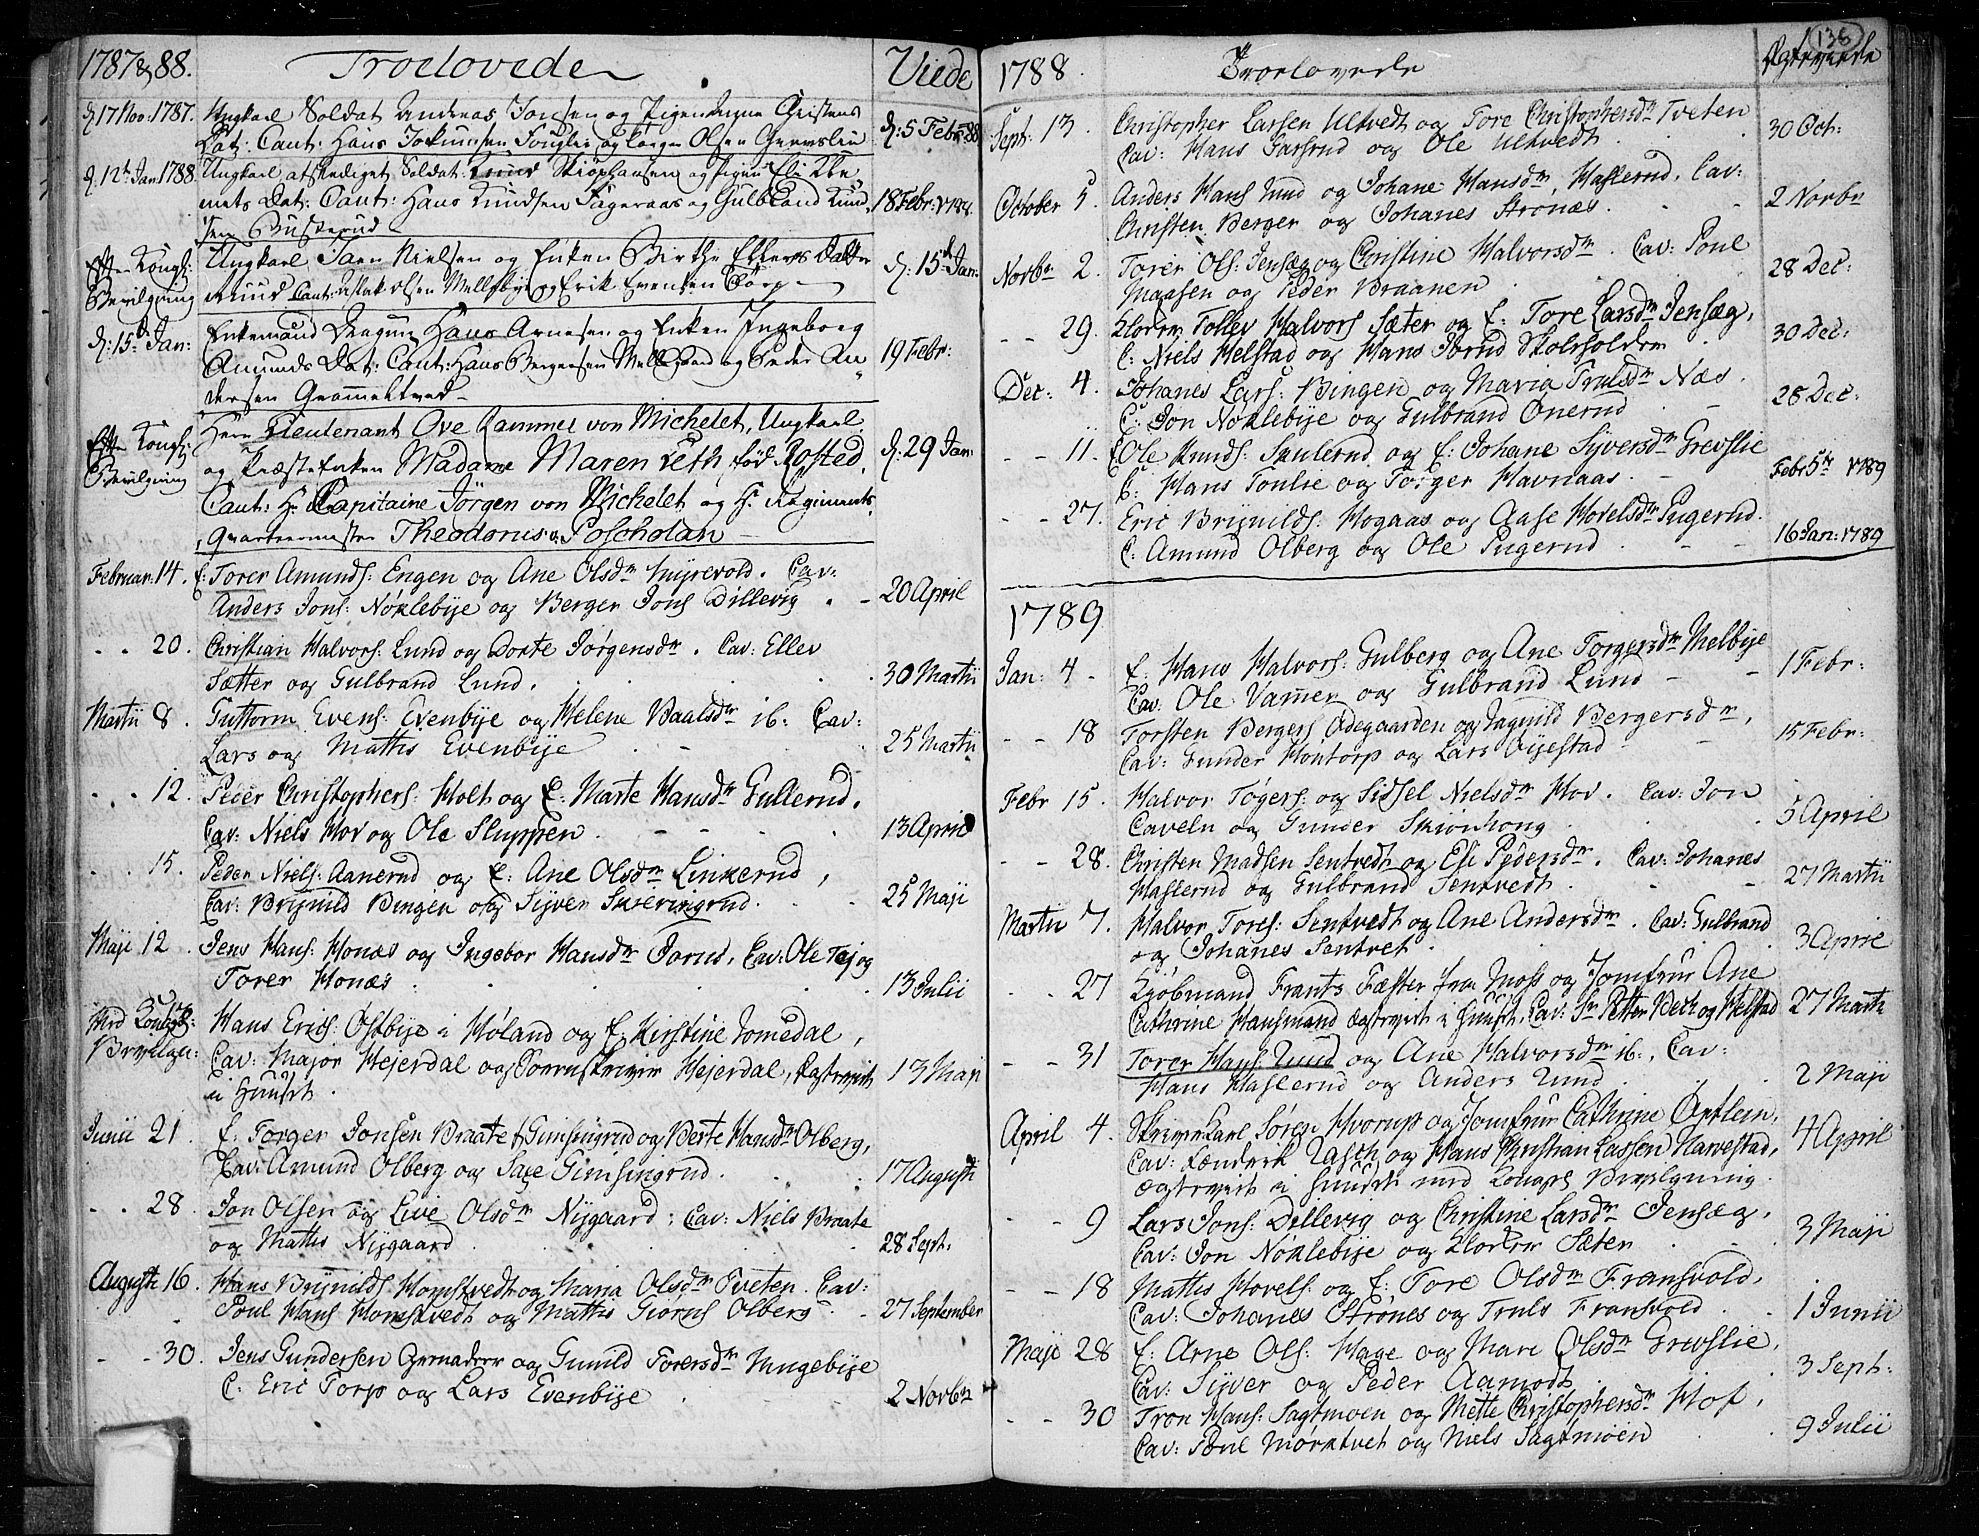 1787 & 88. Troelovede Viede
d. 17 Nov: 1787. Ungkarl Soldat Andreas Jonsen og Pigen Christens
Dat: Caut: Hans Jokumsen Fougler og Olsen d. 5 Febr: 88
d. 12te Jan: 1788. Ungkarl afskediget Soldat Knud og Pigen Eli
Dat: Caut: Hans Knudsen Fageraas og Gulbrand Knud 18 Febr: 1788.
sen Busterud
Efter Kongl: Ungkarl Nielsen og Enken Birthe Ellevs Datter
Bevilgning Caut: Mellebye og Erik Evensen Torp d: 15de Jan:
d: 15de Jan: Enkemand Hans Arnesen og Enken Ingeborg
Amunds Dat: Caut: Hans Bergersen og Peder An 19 Febr:
dersen
Efter Kongl: Herr Lieutenant Ove Rammel von Michelet, Ungkarl
Bevilgning og PræsteEnken Madame Maren Leth, fød Rosted. d: 29 Jan:
Caut: Hr. Capitaine Jørgen von Michelet og Hr. Regiments
Quarteermester Theodorus Poscholan
Februar: 14. E: Torer Amunds: Engen og Ane Olsdr Myrevold. Cav:
Anders Jons: Nøklebye og Berger Jons Dillevig. 20 April
- - 20. Christian Halvors: Lund og Dorte Jørgensdr. Cav: Ellev
Sætter og Gulbrand Lund. 30 Martii
Martii 8. Guttorm Evens: Evenbye og Helene Paalsdr ib: Cav:
Lars og Mathis Evenbye 25 Martii
- - 12. Peder Christophers: Holt og E: Marte Hansdr Gullerud.
Cav: Niels Hov og Ole Sluppen. 13 April
- - 15. Peder Niels: Aanerud og E: Ane Olsdr Linkerud,
Cav: Brynild Bingen og Syver Skieringrud. 25 Maji
Maji 12. Jens Hans: Honæs og Ingebor Hansdr Jorud, Cav: Ole Tej og
Torer Honæs. 13 Julii
Med Kongl: Hans Erics: Østbye i Høland og E: Kirstine Jomedal,
Bevilgn: Cav: Major Hejerdal og Sorenskriver Hejerdal, Egteviet 13 Maji
i Huuset.
Junii 21. E: Torger Jonsen Braate Gimsingrud og Berte Hansdr Olberg,
Cav: Amund Olberg og Gimsingrud. 17 Augusti
- - 28. Jon Olsen og Live Olsdr Nygaard; Cav: Niels Braate
og Mathis Nygaard 28 Sept:
Augusti 16. Hans Brynilds: Homstvedt og Maria Olsdr Tveten. Cav:
Poul Hans Homstvedt og Mathis Giorus Olberg 27 September
- - 30. Jens Gundersen Grenaderer og Gunild Torersdr Ungebye
C: Eric Torp og Lars Evenbye 2 Novbr
138
1788. Troelovede Egteviede
Sept: 13. Christopher Larsen Ultvedt og Tore Christophersdr Tveten
Cav: Hans Garsrud og Ole Ultvedt. 30 Oct:
October 5. Anders Hans Lund og Johane Hansdr, Haslerud. Cav:
Christen Berger og Johanes Stronæs. 2 Novbr
Novbr 2. Torer Ols: Jensæg og Christine Halvorsdr. Cav: Poul
Maasen og Peder Braanen. 28 Dec:
- - 29. Tollev Halvors Sæter og E: Tore Larsdr Jensæg,
C: Niels Helstad og Hans Jorud Skoleholder. 30 Dec:
Dec: 4. Johanes Lars: Bingen og Maria Trulsdr Næs.
C: Jon Nøklebye og Gulbrand Onerud 28 Dec:
- - 11. E: Ole Knuds: Saulerud og E: Johane Syversdr Grevslie
C: Hans Toulie og Torger Havnaas. Febr 5te 1789
- - 27. Eric Brynilds: Hogaas og Aase Hovelsdr Sugerud.
C: Amund Olberg og Ole Sugerud. 16 Jan: 1789
1789
Jan: 4. E: Hans Halvors: Gulberg og Ane Torgersdr Melbye
Cav: Ole Vammer og Gulbrand Lund 1 Febr:
- - 18 Torsten Bergers Ødegaarden og Ragnild Bergersdr,
Cav: Gunder Hontorp og Lars Øyestad 15 Febr:
Febr 15. Halvor Togers: og Sidsel Nielsdr Hov. Cav: Jon
Caveln og Gunder Skiønhoug 5 April
- - 28. Christen Madsen Sentvedt og Eli Pedersdr. Cav: Johanes
Haslerud og Gulbrand Sentvedt. 27 Martii
Martii 7. Halvor Tores: Sentvedt og Ane Andersdr. Cav: Gulbrand
og Johanes Sentvet. 3 April
- - 27 Kjøbmand Frants Fæster fra Moss og Jomfrue Ane
Cathrine Hausmand Egteviet i Huuset. Cav: Sr Petter Beth og Helstad 27 Martii
- - 31 Torer Hans: Lund og Ane Halvorsdr ib:, Cav:
Hans Haslerud og Anders Lund. 2 Maji
April 4. Skriverkarl Søren Hvorup og Jomfrue Cathrine
Cav: Lænderk Rasch og Hans Christian Lassen Narvestad, 4 April
Egteviet i Huuset med Kongel: Bevilgning.
- - 9 Lars Jons: Dillevig og Christine Larsdr Jensæg,
Cav: Jon Nøklebye og Sæter 3 Maji
- - 18 Mathis Hovels: og E: Tore Olsdr Fransvold,
Cav: Johanes Strones og Truls Fransvold. 1 Junii
Maji 28 E: Arne Ols: Hage og Mari Olsdr Grevslie,
Cav: Syver og Peder Aamodt. 3 Sept:
- - 30 Tron Hans: Sagtmoen og Mette Christophersdr Hof,
Cav: Poul Mørktvet og Niels Sagtmoen 9 Julii